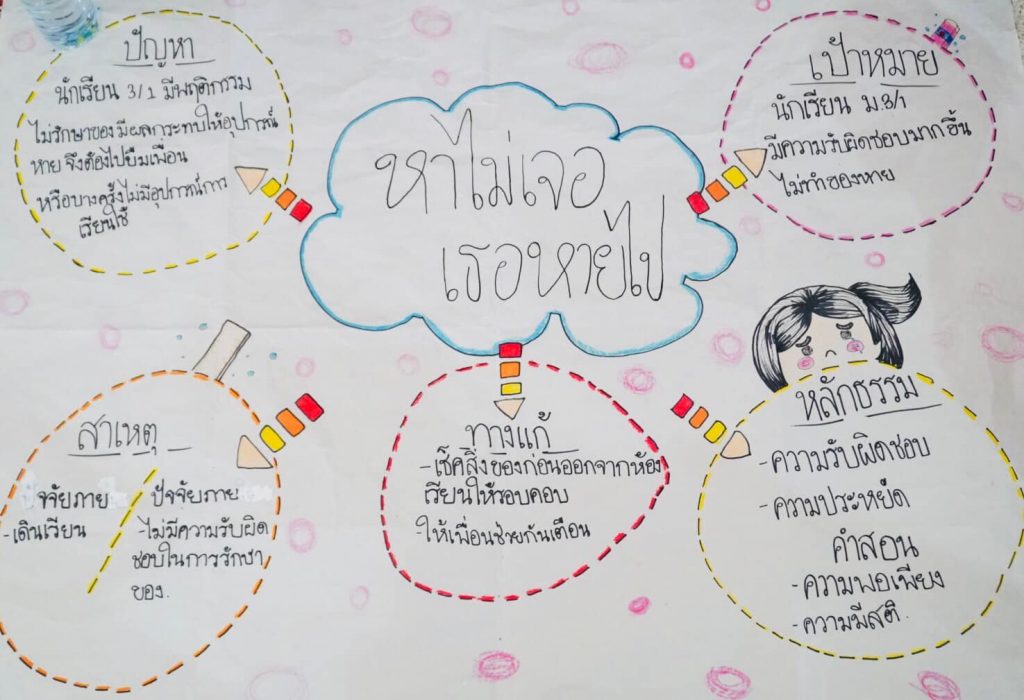 หาไม่เจอ
เธอหายไป
ปัญหา
นักเรียน 3/1 มีพฤติกรรม
ไม่รักษาของ มีผลกระทบให้อุปกรณ์
หาย จึงต้องไปยืมเพื่อน
หรือบางครั้งไม่มีอุปกรณ์การ
เรียนใช้
เป้าหมาย
นักเรียน ม3/1
มีความรับผิดชอบมากขึ้น
ไม่ทำของหาย
สาเหตุ
ปัจจัยภาย
-เดินเรียน
ปัจจัยภาย
-ไม่มีความรับผิด
ชอบในการรักษา
ของ.
ทางแก้
-เช็คสิ่งของก่อนออกจากห้อง
เรียนให้รอบคอบ
-ให้เพื่อนช่วยกันเตือน
หลักธรรม
-ความรับผิดชอบ
-ความประหยัด
คำสอน
-ความพอเพียง
-ความมีสติ.